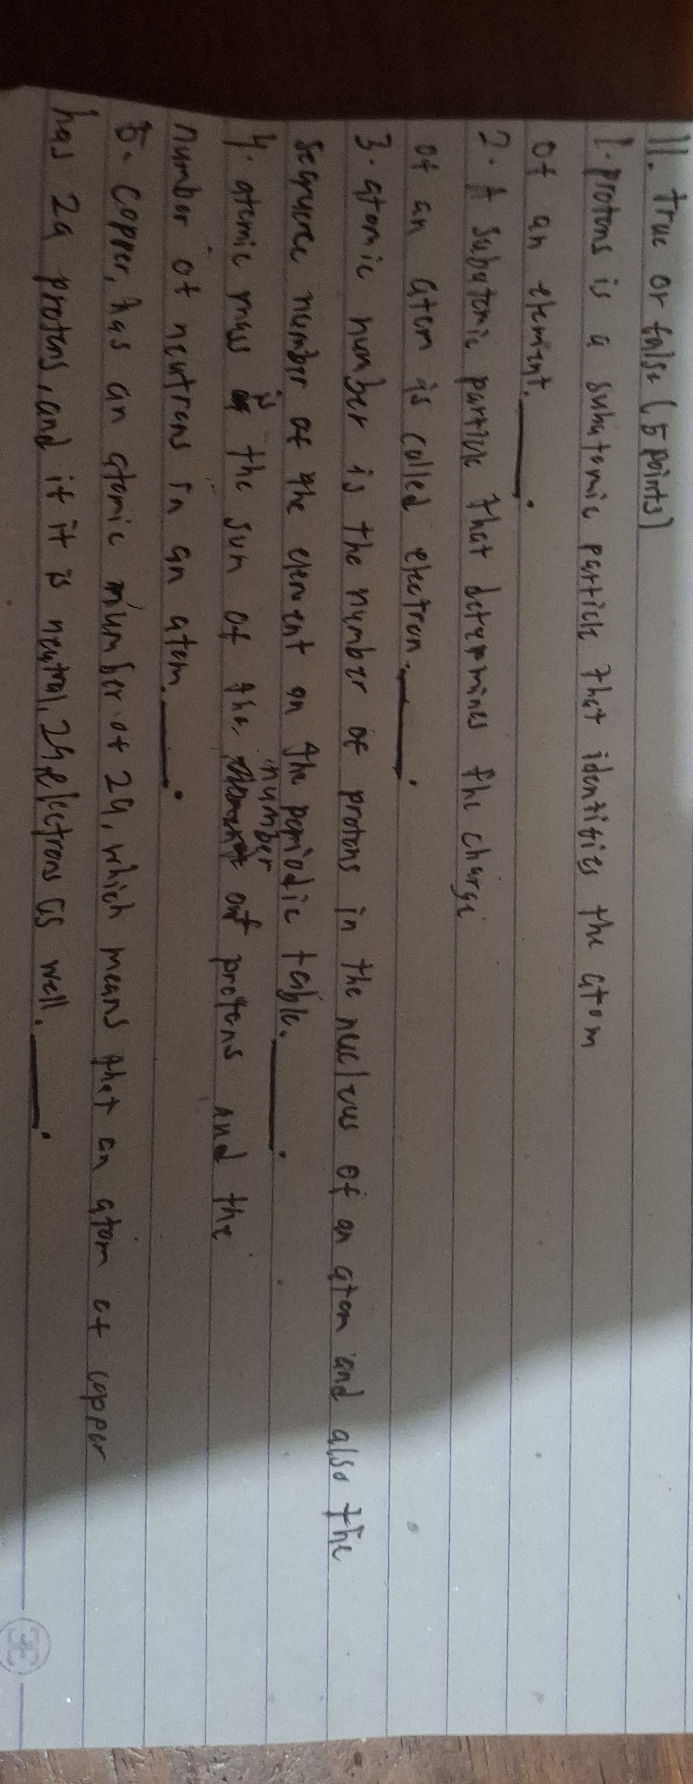 11. true or false (5 points)
1. protons is a subatomic particle that identifies the atom
of an element. ____.
2. A subatomic particle that determines the charge
of an atom is called electron. ____.
3. atomic number is the number of protons in the nucleus of an atom and also the
sequence number of the element on the periodic table. ____.
4. atomic mass is the sum of the number of protons and the
number of neutrons in an atom. ____.
5. Copper, has an atomic number of 29, which means that an atom of copper
has 29 protons, and if it is neutral, 29 electrons as well. ____.